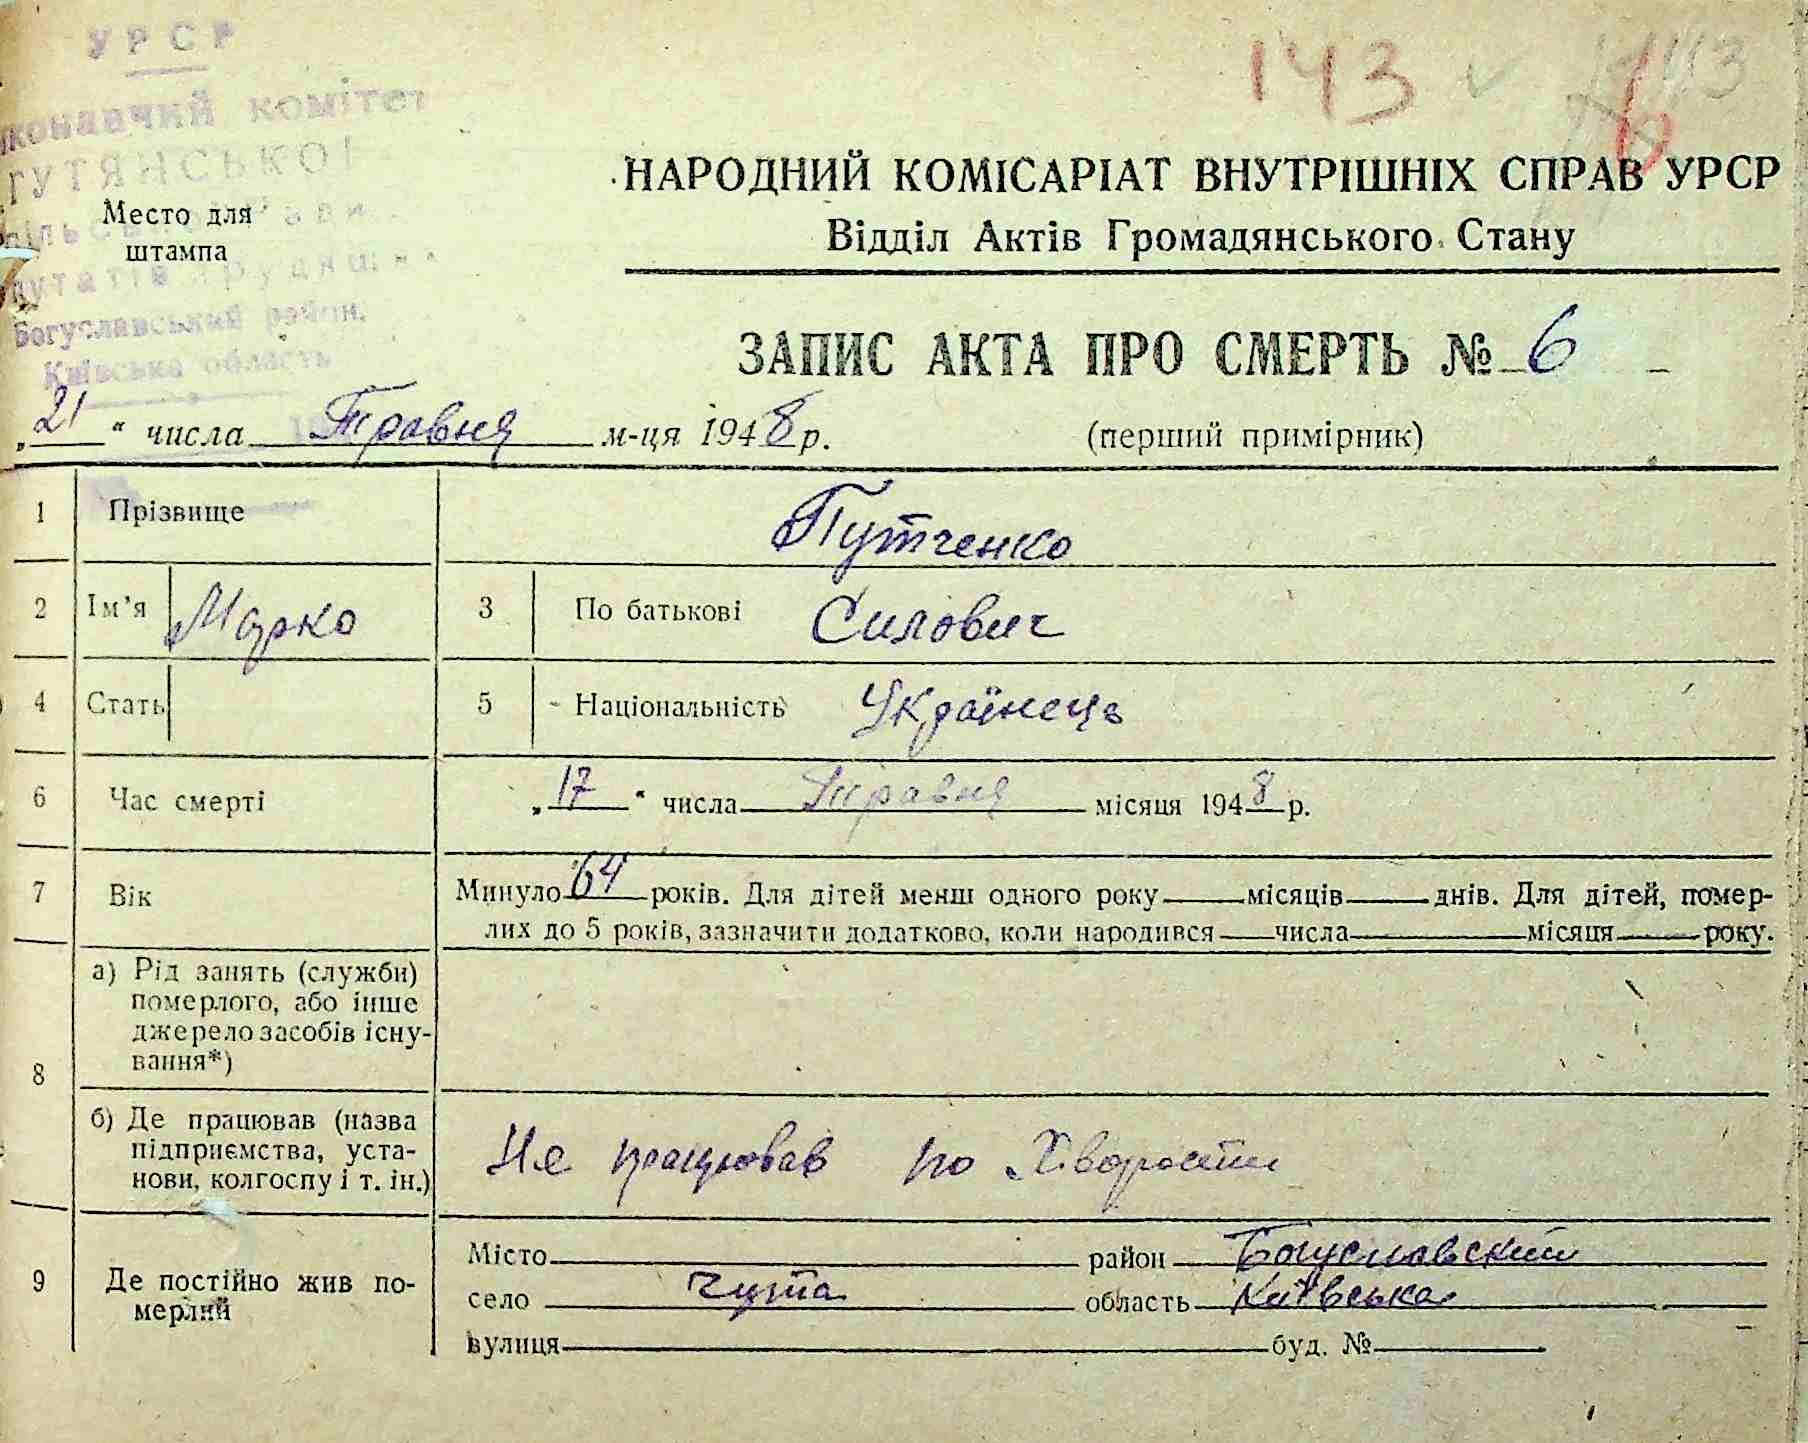 УРСР
виконавчий комітет
ГУТЯНСЬКОЇ
Богуславський район,
Київська область
Место для
штампа
143
НАРОДНИЙ КОМІСАРІАТ ВНУТРІШНІХ СПРАВ УРСР
Відділ Актів Громадянського Стану
ЗАПИС АКТА ПРО СМЕРТЬ № 6
„21“ числа Травня м-ця 1948 р. (перший примірник)
1 Прізвище Путченко
2 Ім'я Марко 3 По батькові Силович
4 Стать 5 Національність Українець
6 Час смерті „17“ числа Травня місяця 1948 р.
7 Вік Минуло 64 років. Для дітей менш одного року місяців днів. Для дітей, помер-
лих до 5 років, зазначити додатково, коли народився числа місяця року.
8 а) Рід занять (служби)
померлого, або інше
джерело засобів існу-
вання*)
б) Де працював (назва
підприємства, уста-
нови, колгоспу і т. ін.)
Не працював по Хворости
9 Де постійно жив по-
мерлий
Місто район Богуславский
село Гута область Київська
вулиця буд. №